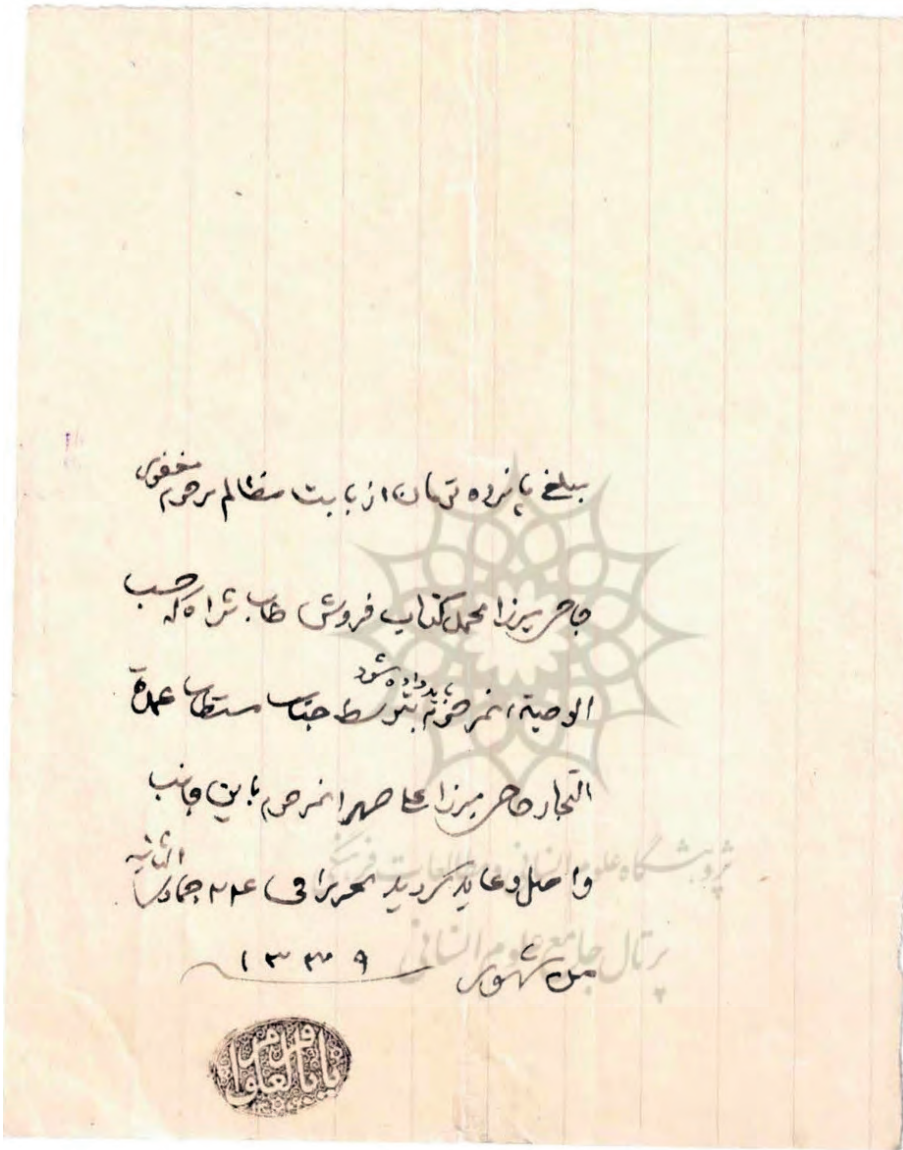 مبلغ پانزده تومان از بابت مظالم مرحوم مغفور
حاجی میرزا محمد کتاب فروش طاب ثراه که حسب
الوصیة آنمرحوم باید داده شود بتوسط جناب مستطاب عمدة
التجار حاجی میرزا علی صهر آنمرحوم باین جانب
واصل و عاید گردید تحریرا فی ۲۴ جمادی الثانیه
من شهور ۱۳۳۹
پژوهشگاه علوم انسانی و مطالعات فرهنگی
پرتال جامع علوم انسانی